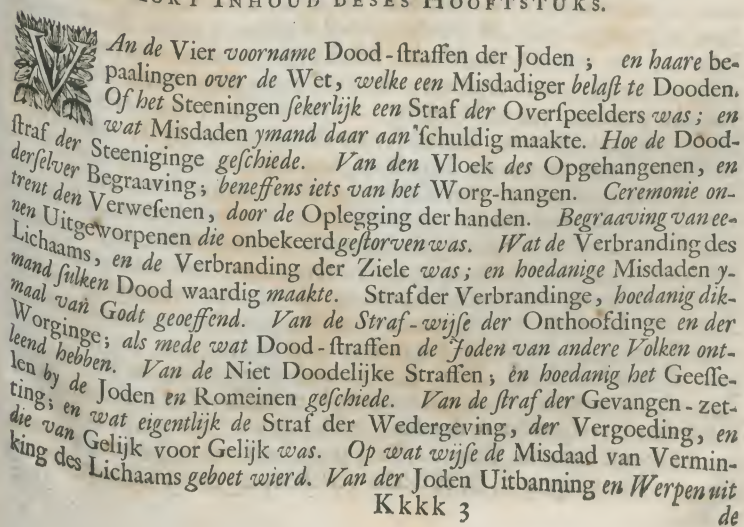 KORT INHOUD DESES HOOFTSTUKS.
VAn de Vier voorname Dood-ſtraffen der Joden ; en haare be-
paalingen over de Wet, welke een Misdadiger belaſt te Dooden.
Of het Steeningen ſekerlijk een Straf der Overſpeelders was ; en
wat Misdaden ymand daar aan ſchuldig maakte. Hoe de Dood-
ſtraf der Steeniginge geſchiede. Van den Vloek des Opgehangenen, en
derſelver Begraaving ; beneffens iets van het Worg-hangen. Ceremonie on-
trent den Verweſenen, door de Oplegging der handen. Begraaving van ee-
nen Uitgeworpenen die onbekeerd geſtorven was. Wat de Verbranding des
Lichaams, en de Verbranding der Ziele was ; en hoedanige Misdaden y-
mand ſulken Dood waardig maakte. Straf der Verbrandinge, hoedanig dik-
maal van Godt geoeffend. Van de Straf-wijſe der Onthoofdinge en der
Worginge ; als mede wat Dood-ſtraffen de Joden van andere Volken ont-
leend hebben. Van de Niet Doodelijke Straffen ; en hoedanig het Geeſſe-
len by de Joden en Romeinen geſchiede. Van de ſtraf der Gevangen-zet-
ting ; en wat eigentlijk de Straf der Wedergeving, der Vergoeding, en
die van Gelijk voor Gelijk was. Op wat wijſe de Misdaad van Vermin-
king des Lichaams geboet wierd. Van der Joden Uitbanning en Werpen uit
Kkkk 3 de